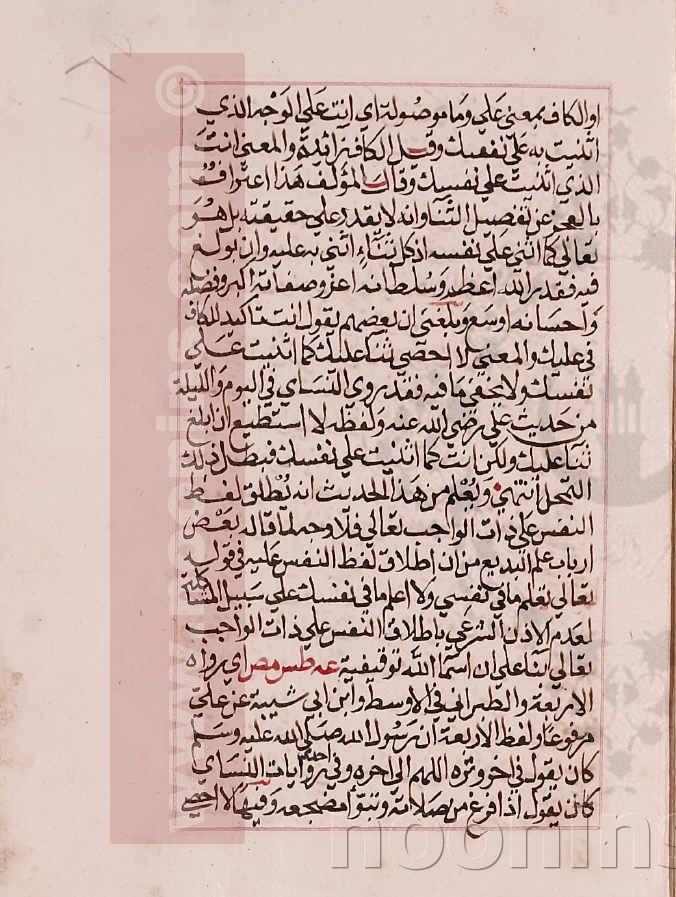 او الكاف بمعنى على وما موصولة اي انت على الوجه الذي
اثنيت به على نفسك وقيل الكاف زائدة والمعنى انت
الذي اثنيت على نفسك وقال المؤلف هذا اعتراف
بالعجز عن تفصيل الثنا وانه لا يقدر على حقيقته بل هو
تعالى كما اثنى على نفسه اذ كل ثناء اثني به عليه وان بولغ
فيه فقدر الله اعظم وسلطانه اعز وصفاته اكبر وفضله
واحسانه اوسع وبلغني ان بعضهم يقول انت تاكيد للكاف
في عليك والمعنى لا احصي ثنا عليك كما اثنيت على
نفسك ولا يخفى ما فيه فقد روى النساي في اليوم والليلة
من حديث علي رضي الله عنه ولفظه لا استطيع ان ابلغ
ثنا عليك ولكن انت كما اثنيت على نفسك فبطل ذلك
التمحل انتهى ويعلم من هذا الحديث انه يطلق لفظ
النفس على ذات الواجب تعالى فلا وجه لما قاله بعض
ارباب علم البديع من ان اطلاق لفظ النفس عليه في قوله
تعالى تعلم ما في نفسي ولا اعلم ما في نفسك على سبيل المشاكلة
لعدم الاذن الشرعي باطلاق النفس على ذات الواجب
تعالى بنا على ان اسما الله توقيفية عه طس مص اي رواه
الاربعة والطبراني في الاوسط وابن ابي شيبة عن علي
مرفوعا ولفظ الاربعة ان رسول الله صلى الله عليه وسلم
كان يقول في اخر وتره اللهم الى اخره وفي احدى روايات النساي
كان يقول اذا فرغ من صلاته وتبوأ مضجعه وفيها لا احصي
© www.noorlins.com
noorlins